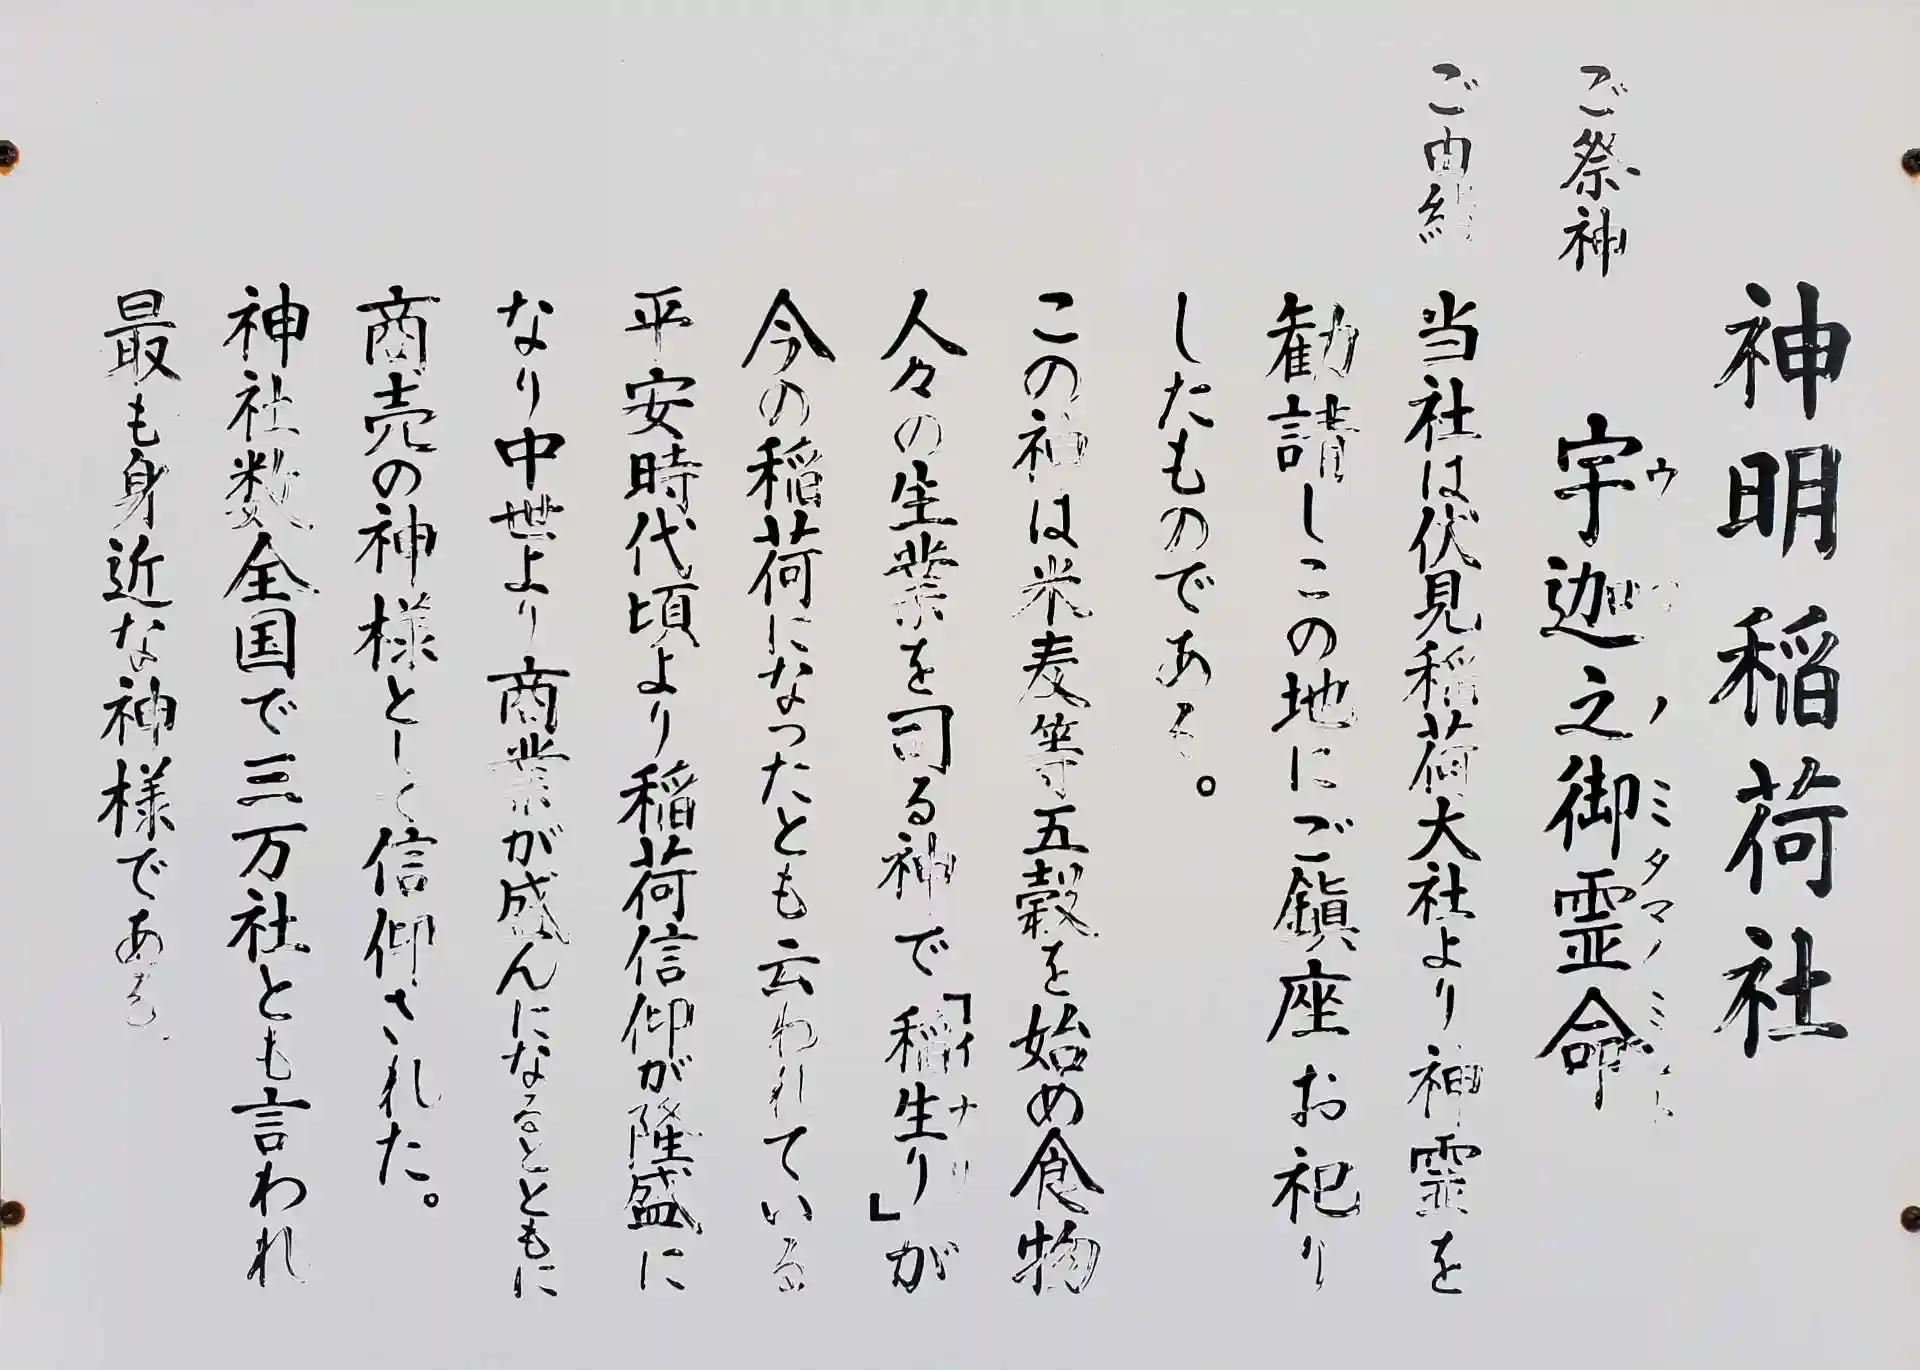 神明稲荷社
ご祭神 宇迦之御霊命
ウカノミタマノミコト
ご由緒 当社は伏見稲荷大社より神霊を
勧請しこの地にご鎮座お祀り
したものである。
この神は米麦等五穀を始め食物
人々の生業を司る神で「稲生り」が
イナリ
今の稲荷になったとも云われている
平安時代頃より稲荷信仰が隆盛に
なり中世より商業が盛んになるとともに
商売の神様として信仰された。
神社数全国で三万社とも言われ
最も身近な神様である